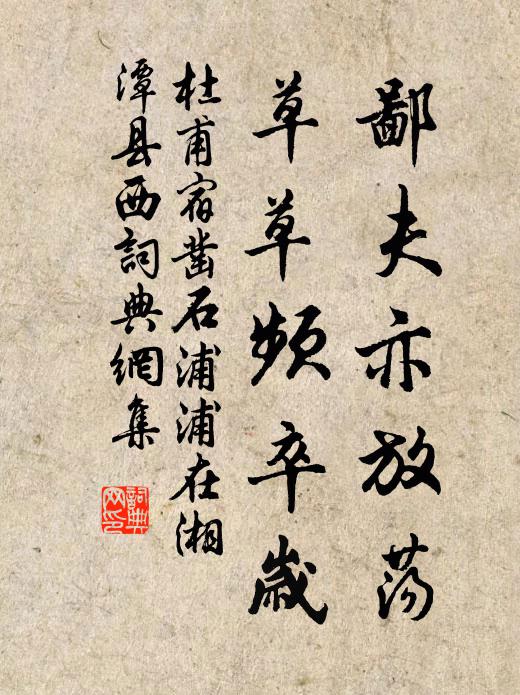 鄙夫亦放荡
草草频卒岁
杜甫宿凿石浦浦在湘
潭县西词典网集
词典网印